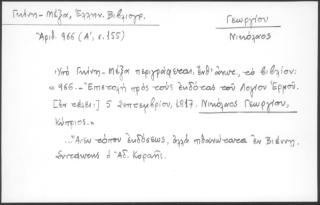 Γκίνη - Μέξα, Ἑλλην. Βιβλιογρ.
Ἀριθ. 966 (Α΄, σ. 155)
Γεωργίου
Νικόλαος
Ὑπό Γκίνη - Μέξα περιγράφεται, ἔνθ' ἀνωτ., τό βιβλίον:
« 966. - Ἐπιστολή πρός τούς ἐκδότας τοῦ Λογίου Ἑρμοῦ.
[Ἐν τέλει:] 5 Σεπτεμβρίου, 1817. Νικόλαος Γεωργίου,
Κύπριος.»
...Ἄνευ τόπου ἐκδόσεως, ἀλλά πιθανώτατα ἐν Βιέννῃ.
Συντάκτης ὁ Ἀδ. Κοραῆς.